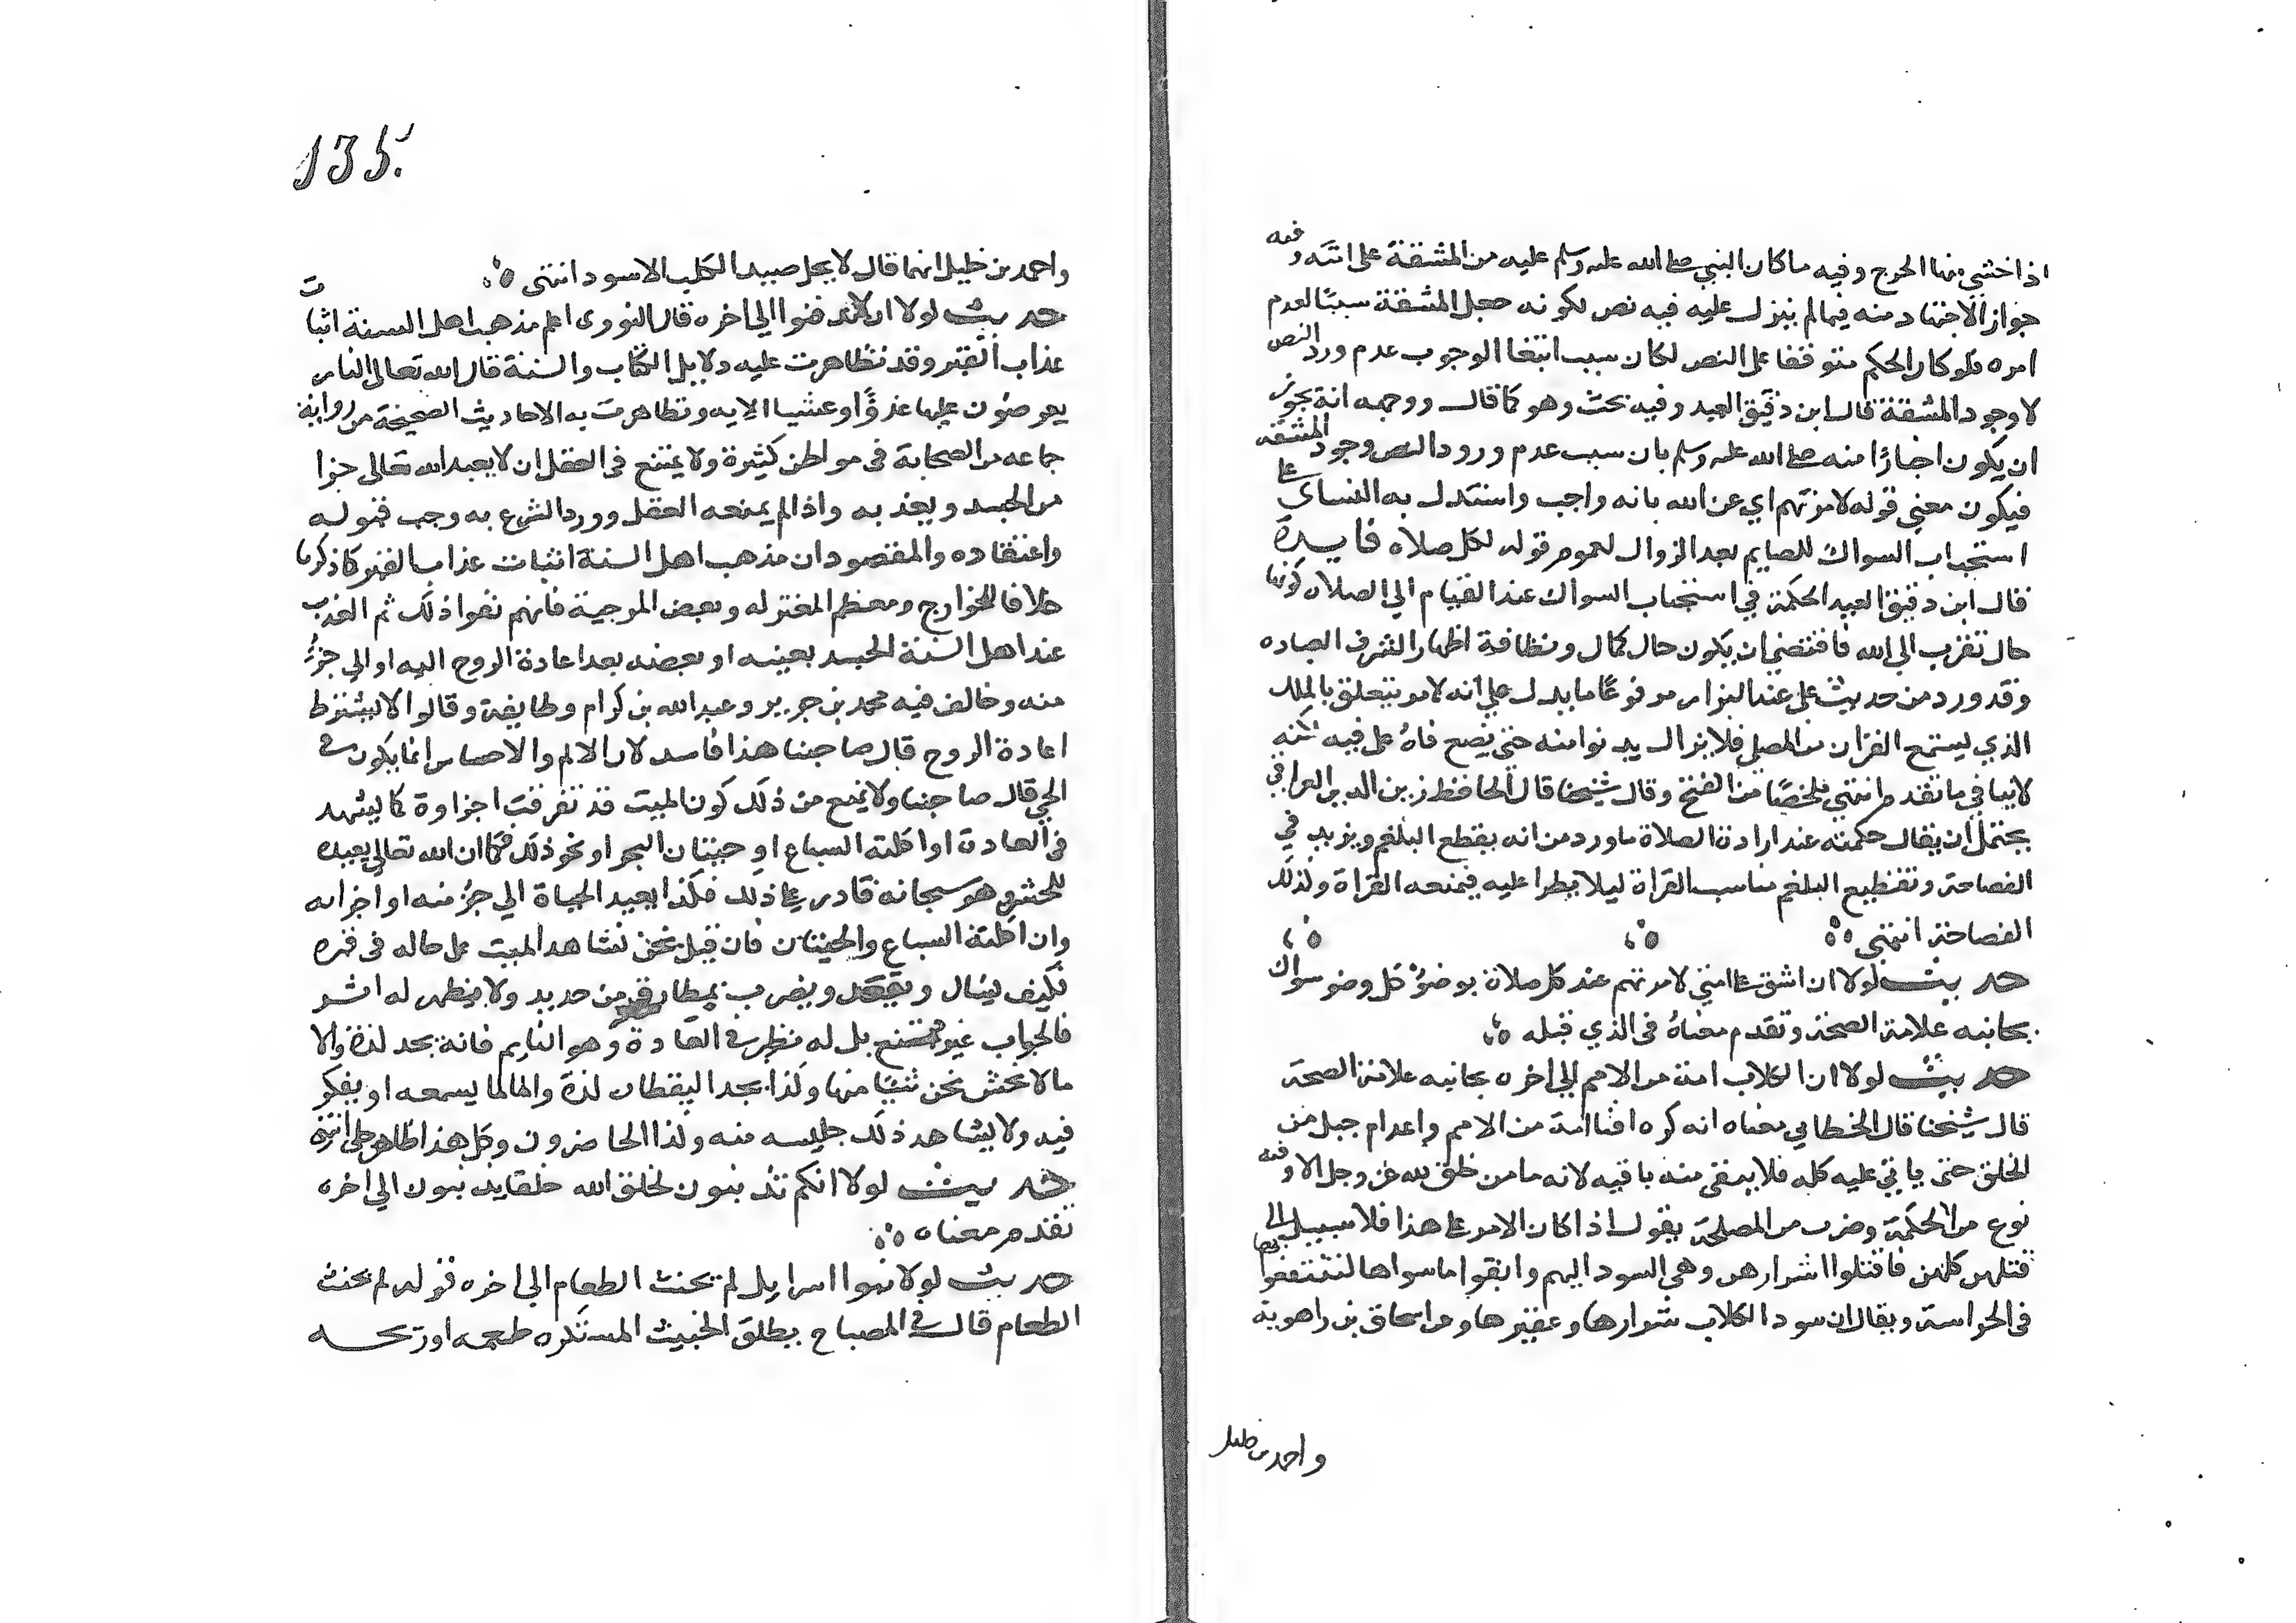 اذا خشي منها الحرج وفيه ما كان النبي صلى الله عليه وسلم عليه من المشقة على امته وفيه
جواز الاجتهاد منه فيما لم ينزل عليه فيه نص لكونه جعل المشقة سببا لعدم
امره فلو كان الحكم متوقفا على النص لكان سبب انتفا الوجوب عدم ورود النص
لا وجود المشقة قال ابن دقيق العيد وفيه بحث وهو كما قال ووجهه انه يجوز
ان يكون اخبارًا منه صلى الله عليه وسلم بان سبب عدم ورود النص وجود المشقة
فيكون معنى قوله لامرتهم اي عن الله بانه واجب واستدل به النساى على
استحباب السواك للصايم بعد الزوال لعموم قوله لكل صلاه فايدة
قال ابن دقيق العيد الحكمة في استحباب السواك عند القيام الي الصلاه كونها
حال تقرب الي الله فاقتضي ان يكون حال كمال ونظافة اظهار الشرف العباده
وقد ورد من حديث على عند البزار مرفوعًا ما يدل علي انه لامر يتعلق بالملك
الذي يستمع القران من المصلي فلا يزال يدنوا منه حتي يضع فاهُ على فيه لكنه
لا ينافي ما تقدم انتهي ملخصًا من الفتح وقال شيخنا قال الحافظ زين الدين العراقي
يحتمل ان يقال حكمته عند ارادة الصلاة ما ورد من انه يقطع البلغم ويزيد في
الفصاحة وتقطيع البلغم مناسب القراة ليلا يطرا عليه فيمنعه القراة وكذلك
الفصاحة انتهى
حديث لولا ان اشق على امتي لامرتهم عند كل صلاة بوضوٍ وكل وضو سواك
بجانبه علامة الصحة وتقدم معناهُ فى الذي قبله
حديث لولا ان الكلاب امة من الامم الي اخره بجانبه علامة الصحة
قال شيخنا قال الخطابي معناه انه كره افنا امة من الامم واعدام جيل من
الخلق حتى ياتي عليه كله فلا يبقى منه باقيه لانه ما من خلق لله عز وجل الا وفيه
نوع من الحكمة وضرب من المصلحة يقول اذا كان الامر على هذا فلا سبيل الى
قتلهن كلهن فاقتلوا اشرارهن وهي السود البهم وابقوا ما سواها لتنتفعوا بها
فى الحراسة ويقال ان سود الكلاب شرارها وعقيرها وعن اسحاق بن راهوية
واحمد بن حنبل
135
واحمد بن حنبل انهما قال لا يحل صيد الكلب الاسود انتهى
حديث لولا ان لا تدافنوا الي اخره قال النووى اعلم مذهب اهل السنة اثبات
عذاب القبر وقد تظاهرت عليه دلايل الكتاب والسنة قال الله تعالى النار
يعرضون عليها غدوًّا وعشيا الايه وتظاهرت به الاحاديث الصحيحة من رواية
جماعه من الصحابة فى مواطن كثيرة ولا يمتنع فى العقل ان لا يعيد الله تعالى جزا
من الجسد ويعذبه واذا لم يمنعه العقل وورد الشرع به وجب قبوله
واعتقاده والمقصود ان مذهب اهل السنة اثبات عذاب القبر كما ذكرنا
خلافا للخوارج ومعظم المعتزله وبعض المرجية فانهم نفوا ذلك ثم المعذب
عند اهل السنة الجسد بعينه او بعضه بعد اعادة الروح اليه او الي جزءٍ
منه وخالف فيه محمد بن جرير وعبد الله بن كرام وطايفة وقالوا لا يشترط
اعادة الروح قال صاحبنا هذا فاسد لان الالم والاحساس انما يكون في
الحي قال صاحبنا ولا يمنع من ذلك كون الميت قد تفرقت اجزاوة كما يشهد
فى العادة او اكلته السباع او حيتان البحر او نحو ذلك فكما ان الله تعالى يعيده
للحشر وهو سبحانه قادر على ذلك فكذا يعيد الحياة الي جزءٍ منه او اجزاه
وان اكلته السباع والحيتان فان قيل نحن نشاهد الميت على حاله فى قبره
فكيف يسال ويقعد ويضرب بمطارق من حديد ولا يظهر له اثر
فالجواب غير ممتنع بل له نظير في العادة وهو النايم فانه يجد لذة والا
ما لا نحس نحن شيًا منها وكذا يجد اليقظان لذة والما لما يسمعه او يفكر
فيه ولا يشاهد ذلك جليسه منه وكذا الحاضرون وكل هذا ظاهر جلى انتهى
حديث لولا انكم تذنبون لخلق الله خلقا يذنبون الي اخره
تقدم معناه
حديث لولا بنوا اسرايل لم يخنث الطعام الي اخره قوله لم يخنث
الطعام قال في المصباح يطلق الخبيث المستكره طعمه او ريحه